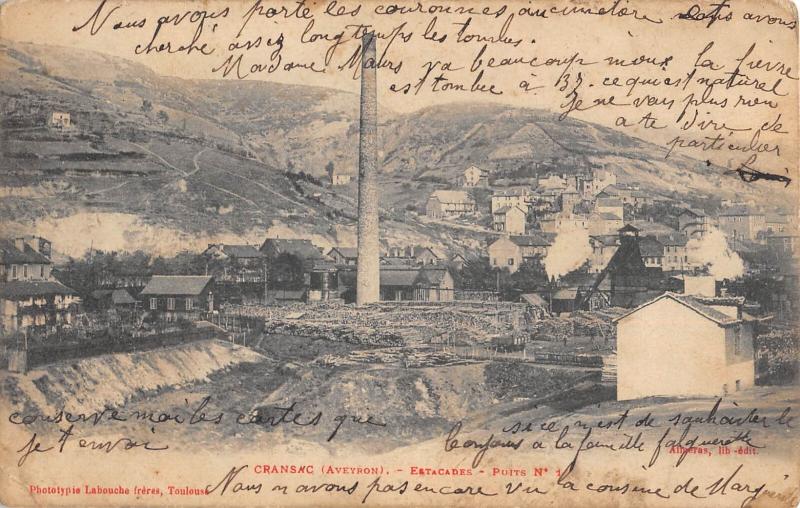 Nous avons porté les couronnes aucimetère nous avons
cherché assez longtemps les tombes.
Madame Maurs va beaucoup mieux la fievre
est tombée à 37. ce qui est naturel
Je ne vais plus rien
a te dire de
particulier
conserve moi les cartes que
je t'envoi
si ce n'est de souhaiter le
bonjour a la famille faguerette
CRANSAC (AVEYRON). - ESTACADES - PUITS N° 1
Alméras, lib-édit.
Phototypie Labouche frères, Toulouse
Nous n'avons pas encore vu la cousine de Marguerite